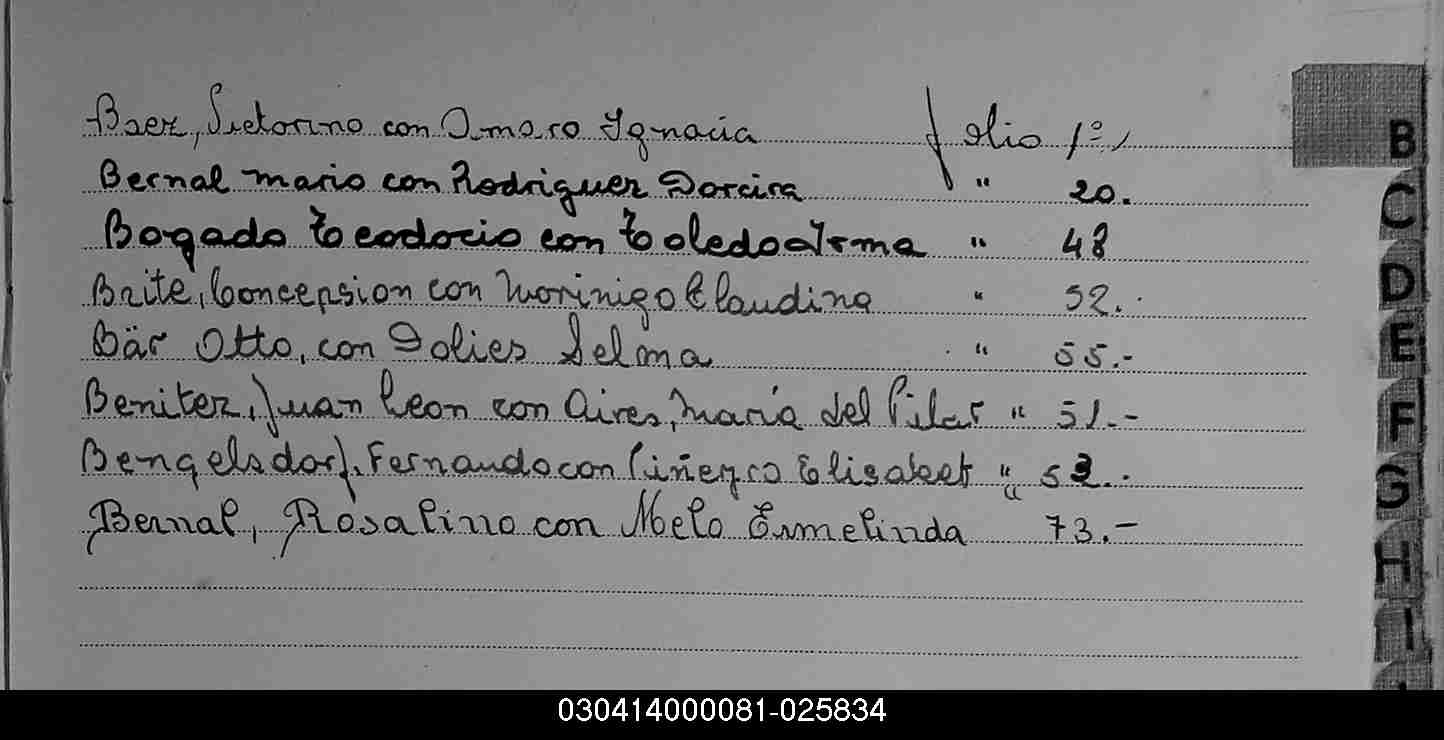 Baez, Sictorino con Amaro Ygnacia folio 1º,
Bernal mario con Rodriguez Dorcira " 20.
Bogado Teodocio con Toledo Irma " 48
Brite, Concepsion con Morinigo Claudina " 52.-
Bär Otto, con Dolies Selma " 55.-
Benitez, Juan Leon con Aires, María del Pilar " 51.-
Bengelsdorf, Fernando con Piñeyro Elisabet " 53.-
Bernal, Rosalino con Melo Ermelinda 73.-
B
C
D
E
F
G
H
I
030414000081-025834